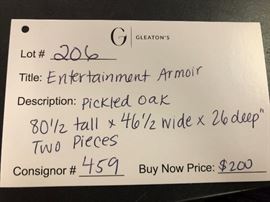 G GLEATON'S
Lot # 206
Title: Entertainment Armoir
Description: Pickled Oak
80 1/2 tall x 46 1/2 wide x 26 deep"
Two Pieces
Consignor # 459 Buy Now Price: $200